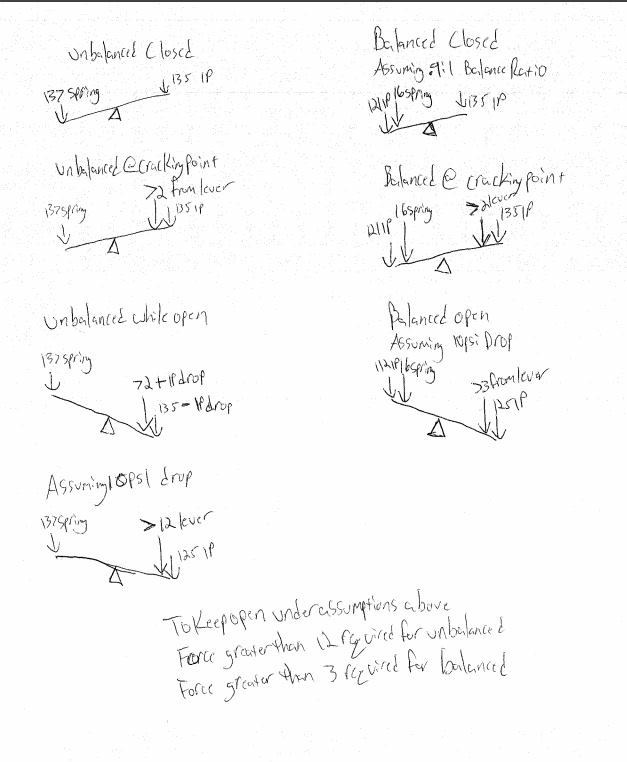 Unbalanced Closed
137 Spring
135 IP
Unbalanced @ cracking point
>2 from lever
137 spring
135 IP
Unbalanced while open
137 spring
>2 + IP drop
135 - IP drop
Assuming 10psi drop
137 spring
>12 lever
125 IP
Balanced Closed
Assuming .9:1 Balance Ratio
121 IP 16 spring
135 IP
Balanced @ cracking point
>2 lever
16 spring
135 IP
121 IP
Balanced open
Assuming 10psi Drop
112 IP 16 spring
>3 from lever
125 IP
To Keep open under assumptions above
Force greater than 12 required for unbalanced
Force greater than 3 required for balanced